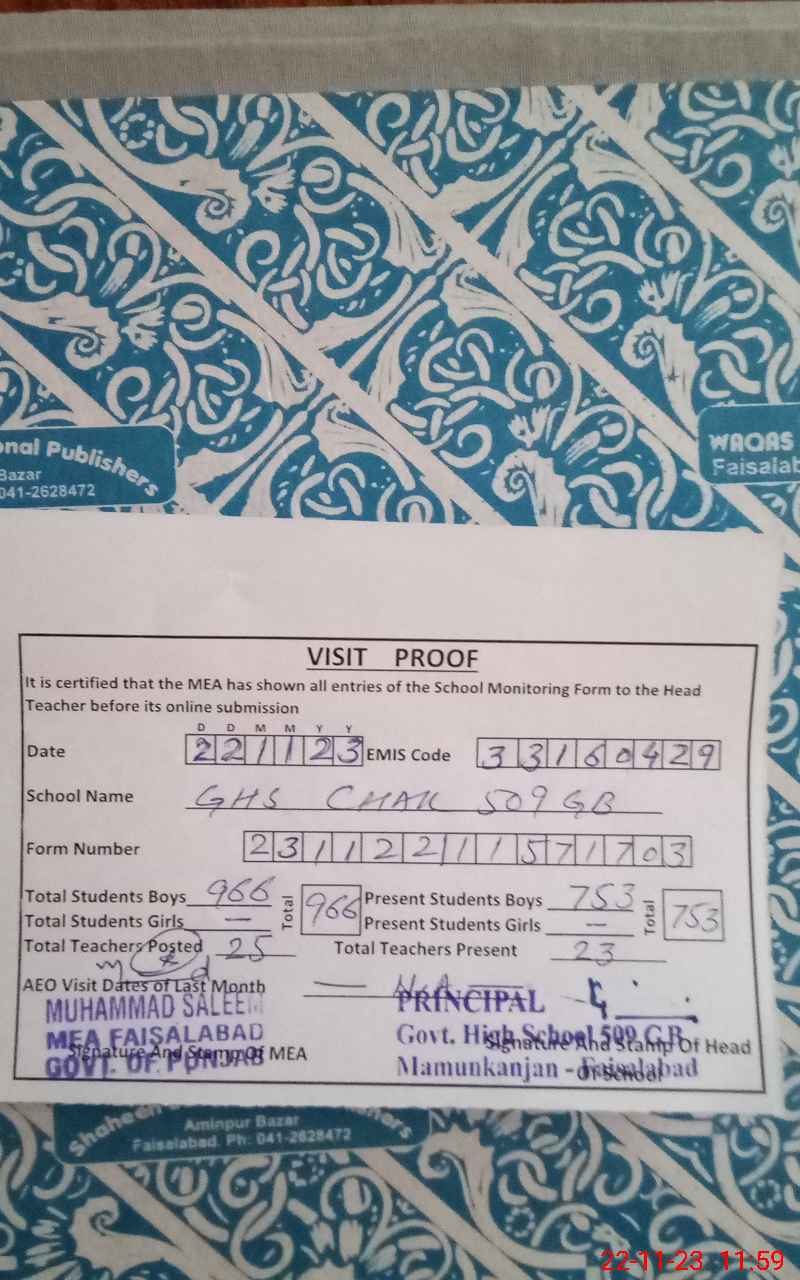 onal Publishers
Bazar
041-2628472
WAQAS
Faisalab
VISIT PROOF
It is certified that the MEA has shown all entries of the School Monitoring Form to the Head
Teacher before its online submission
D D M M Y Y
Date 221123 EMIS Code 33160429
School Name GHS CHAK 509 GB
Form Number 23112211571703
Total Students Boys 966 Total 966 Present Students Boys 753 Total 753
Total Students Girls — Present Students Girls —
Total Teachers Posted 25 Total Teachers Present 23
AEO Visit Dates of Last Month — N.A —
MUHAMMAD SALEEM
MEA FAISALABAD
GOVT. OF PUNJAB
Signature And Stamp Of MEA
PRINCIPAL
Govt. High School 509 G.B.
Mamunkanjan - Faisalabad
Signature And Stamp Of Head
Of School
Shaheen
Publishers
Aminpur Bazar
Faisalabad. Ph: 041-2628472
22-11-23 11:59